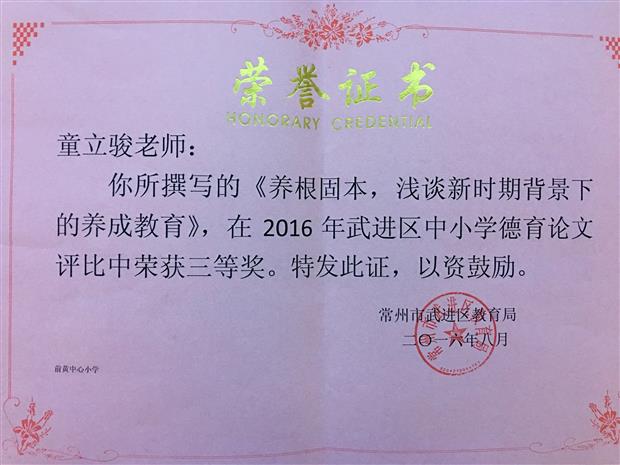 荣誉证书
HONORARY CREDENTIAL
童立骏老师：
你所撰写的《养根固本，浅谈新时期背景下
的养成教育》，在 2016 年武进区中小学德育论文
评比中荣获三等奖。特发此证，以资鼓励。
常州市武进区教育局
二〇一六年八月
常州市武进区教育局
前黄中心小学